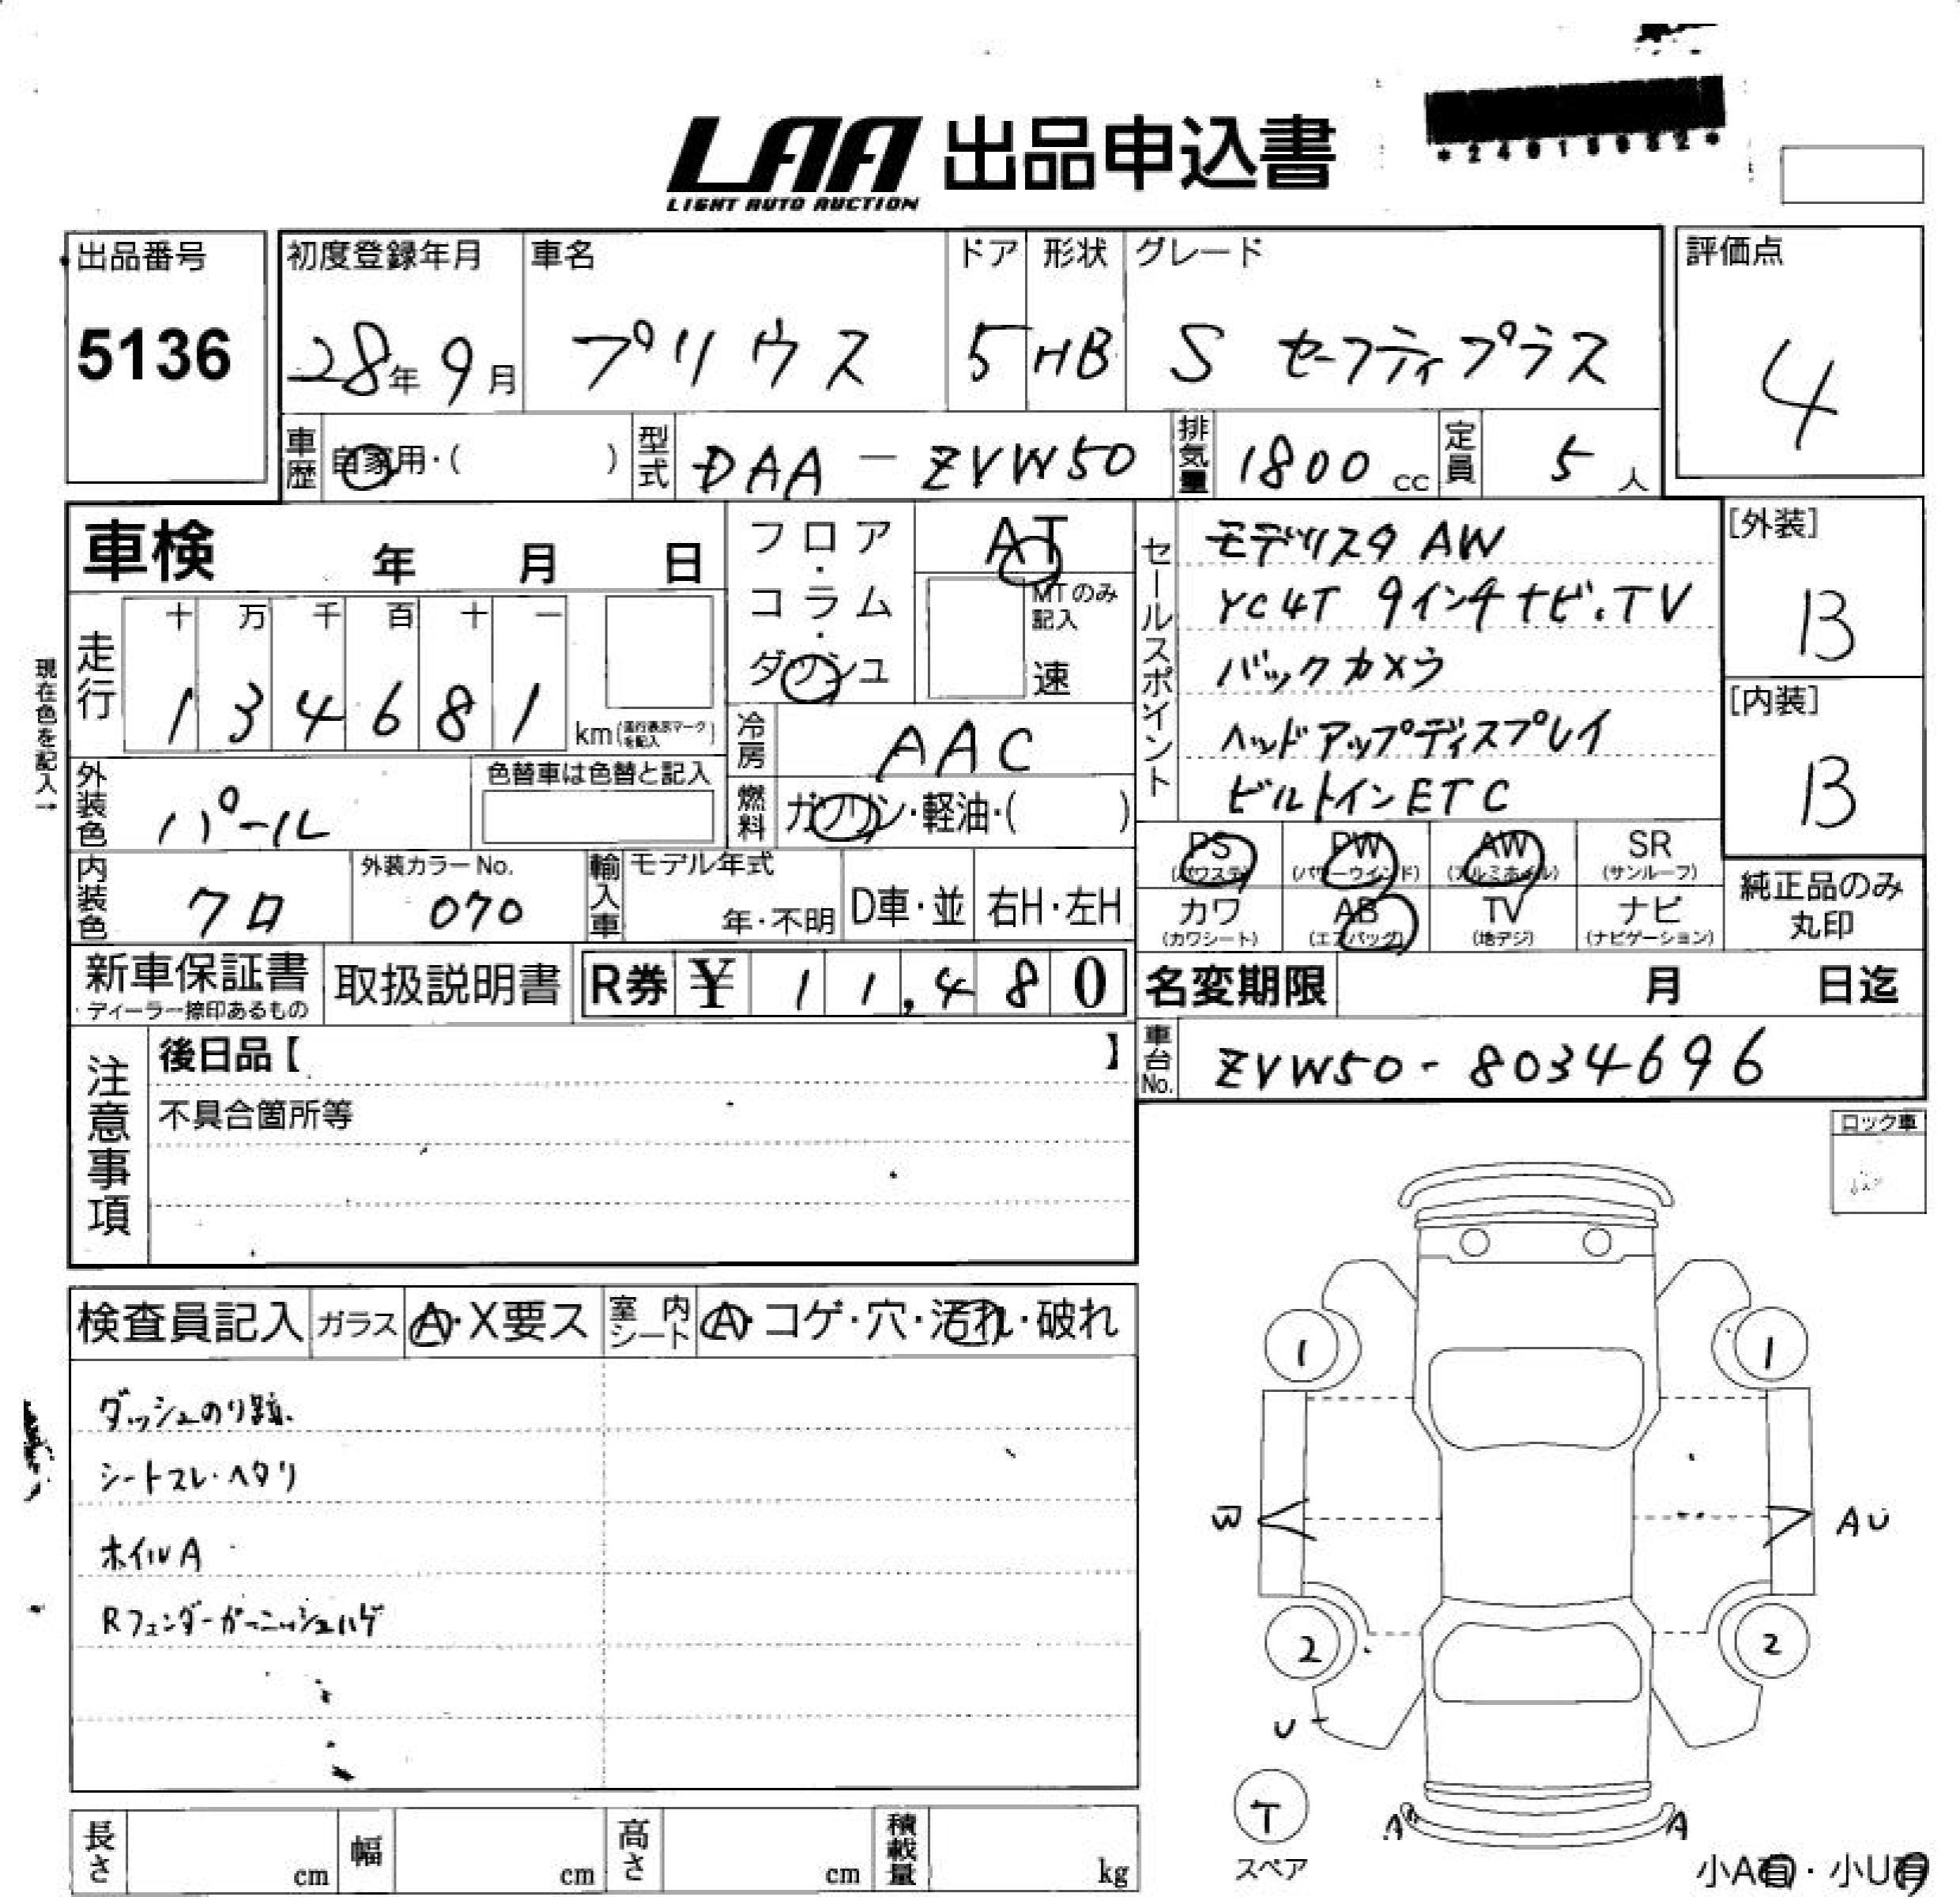 LAA 出品申込書
LIGHT AUTO AUCTION
出品番号
5136
初度登録年月
28年 9月
車名
プリウス
ドア
5
形状
HB
グレード
S セーフティプラス
評価点
4
車歴
自家用・( )
型式
DAA-ZVW50
排気量
1800 cc
定員
5 人
車検 年 月 日
フロア・コラム・ダッシュ
AT
MTのみ記入
速
セールスポイント
モデリスタ AW
YC4T 9インチナビ.TV
バックカメラ
ヘッドアップディスプレイ
ビルトインETC
[外装]
B
[内装]
B
現在色を記入→
走行
十 万 千 百 十 一
1 3 4 6 8 1 km(走行表示マークを記入)
冷房
AAC
外装色
パール
色替車は色替と記入
燃料
ガソリン・軽油・( )
内装色
クロ
外装カラーNo.
070
輸入車
モデル年式
年・不明
D車・並
右H・左H
PS
(パワステ)
PW
(パワーウインド)
AW
(アルミホイル)
SR
(サンルーフ)
カワ
(カワシート)
AB
(エアバッグ)
TV
(地デジ)
ナビ
(ナビゲーション)
純正品のみ
丸印
新車保証書
・ディーラー捺印あるもの
取扱説明書
R券 ¥ 11,480
名変期限 月 日迄
車台No.
ZVW50-8034696
注意事項
後日品【 】
不具合箇所等
ロック車
検査員記入
ガラス
A・X要ス
室内シート
A・コゲ・穴・汚れ・破れ
ダッシュのり跡.
シートスレ・ヘタリ
ホイルA
Rフェンダーガーニッシュハゲ
1 1
W AU
2 2
U
T
スペア
A A
小A有・小U有
長さ cm
幅 cm
高さ cm
積載量 kg